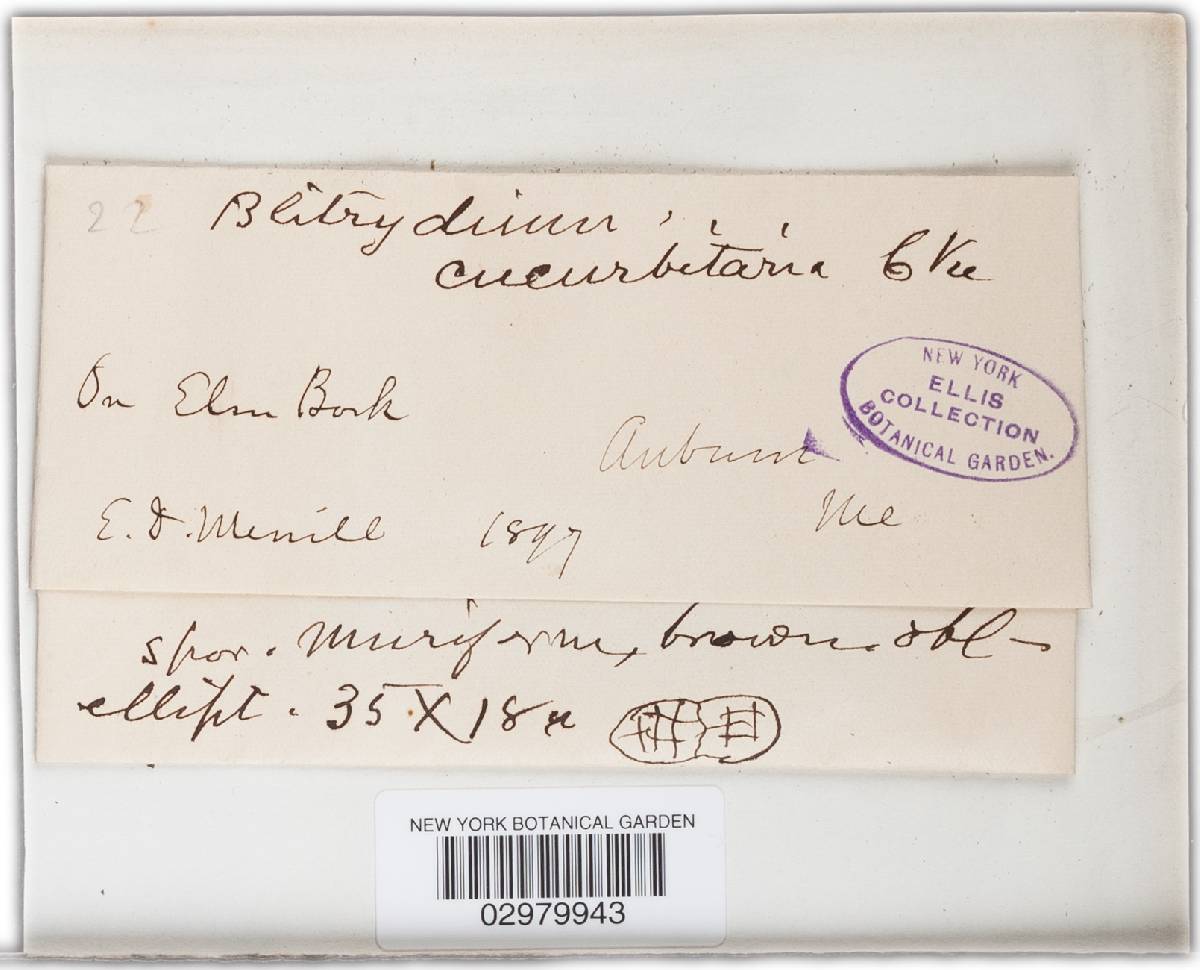 22 Blitrydium
cucurbitaria Cke
On Elm Bark
Auburn
Me
E. D. Merrill 1897
NEW YORK
ELLIS
COLLECTION
BOTANICAL GARDEN.
spor. muriform, brown. obl-
ellipt. 35 X 18 u
NEW YORK BOTANICAL GARDEN
02979943